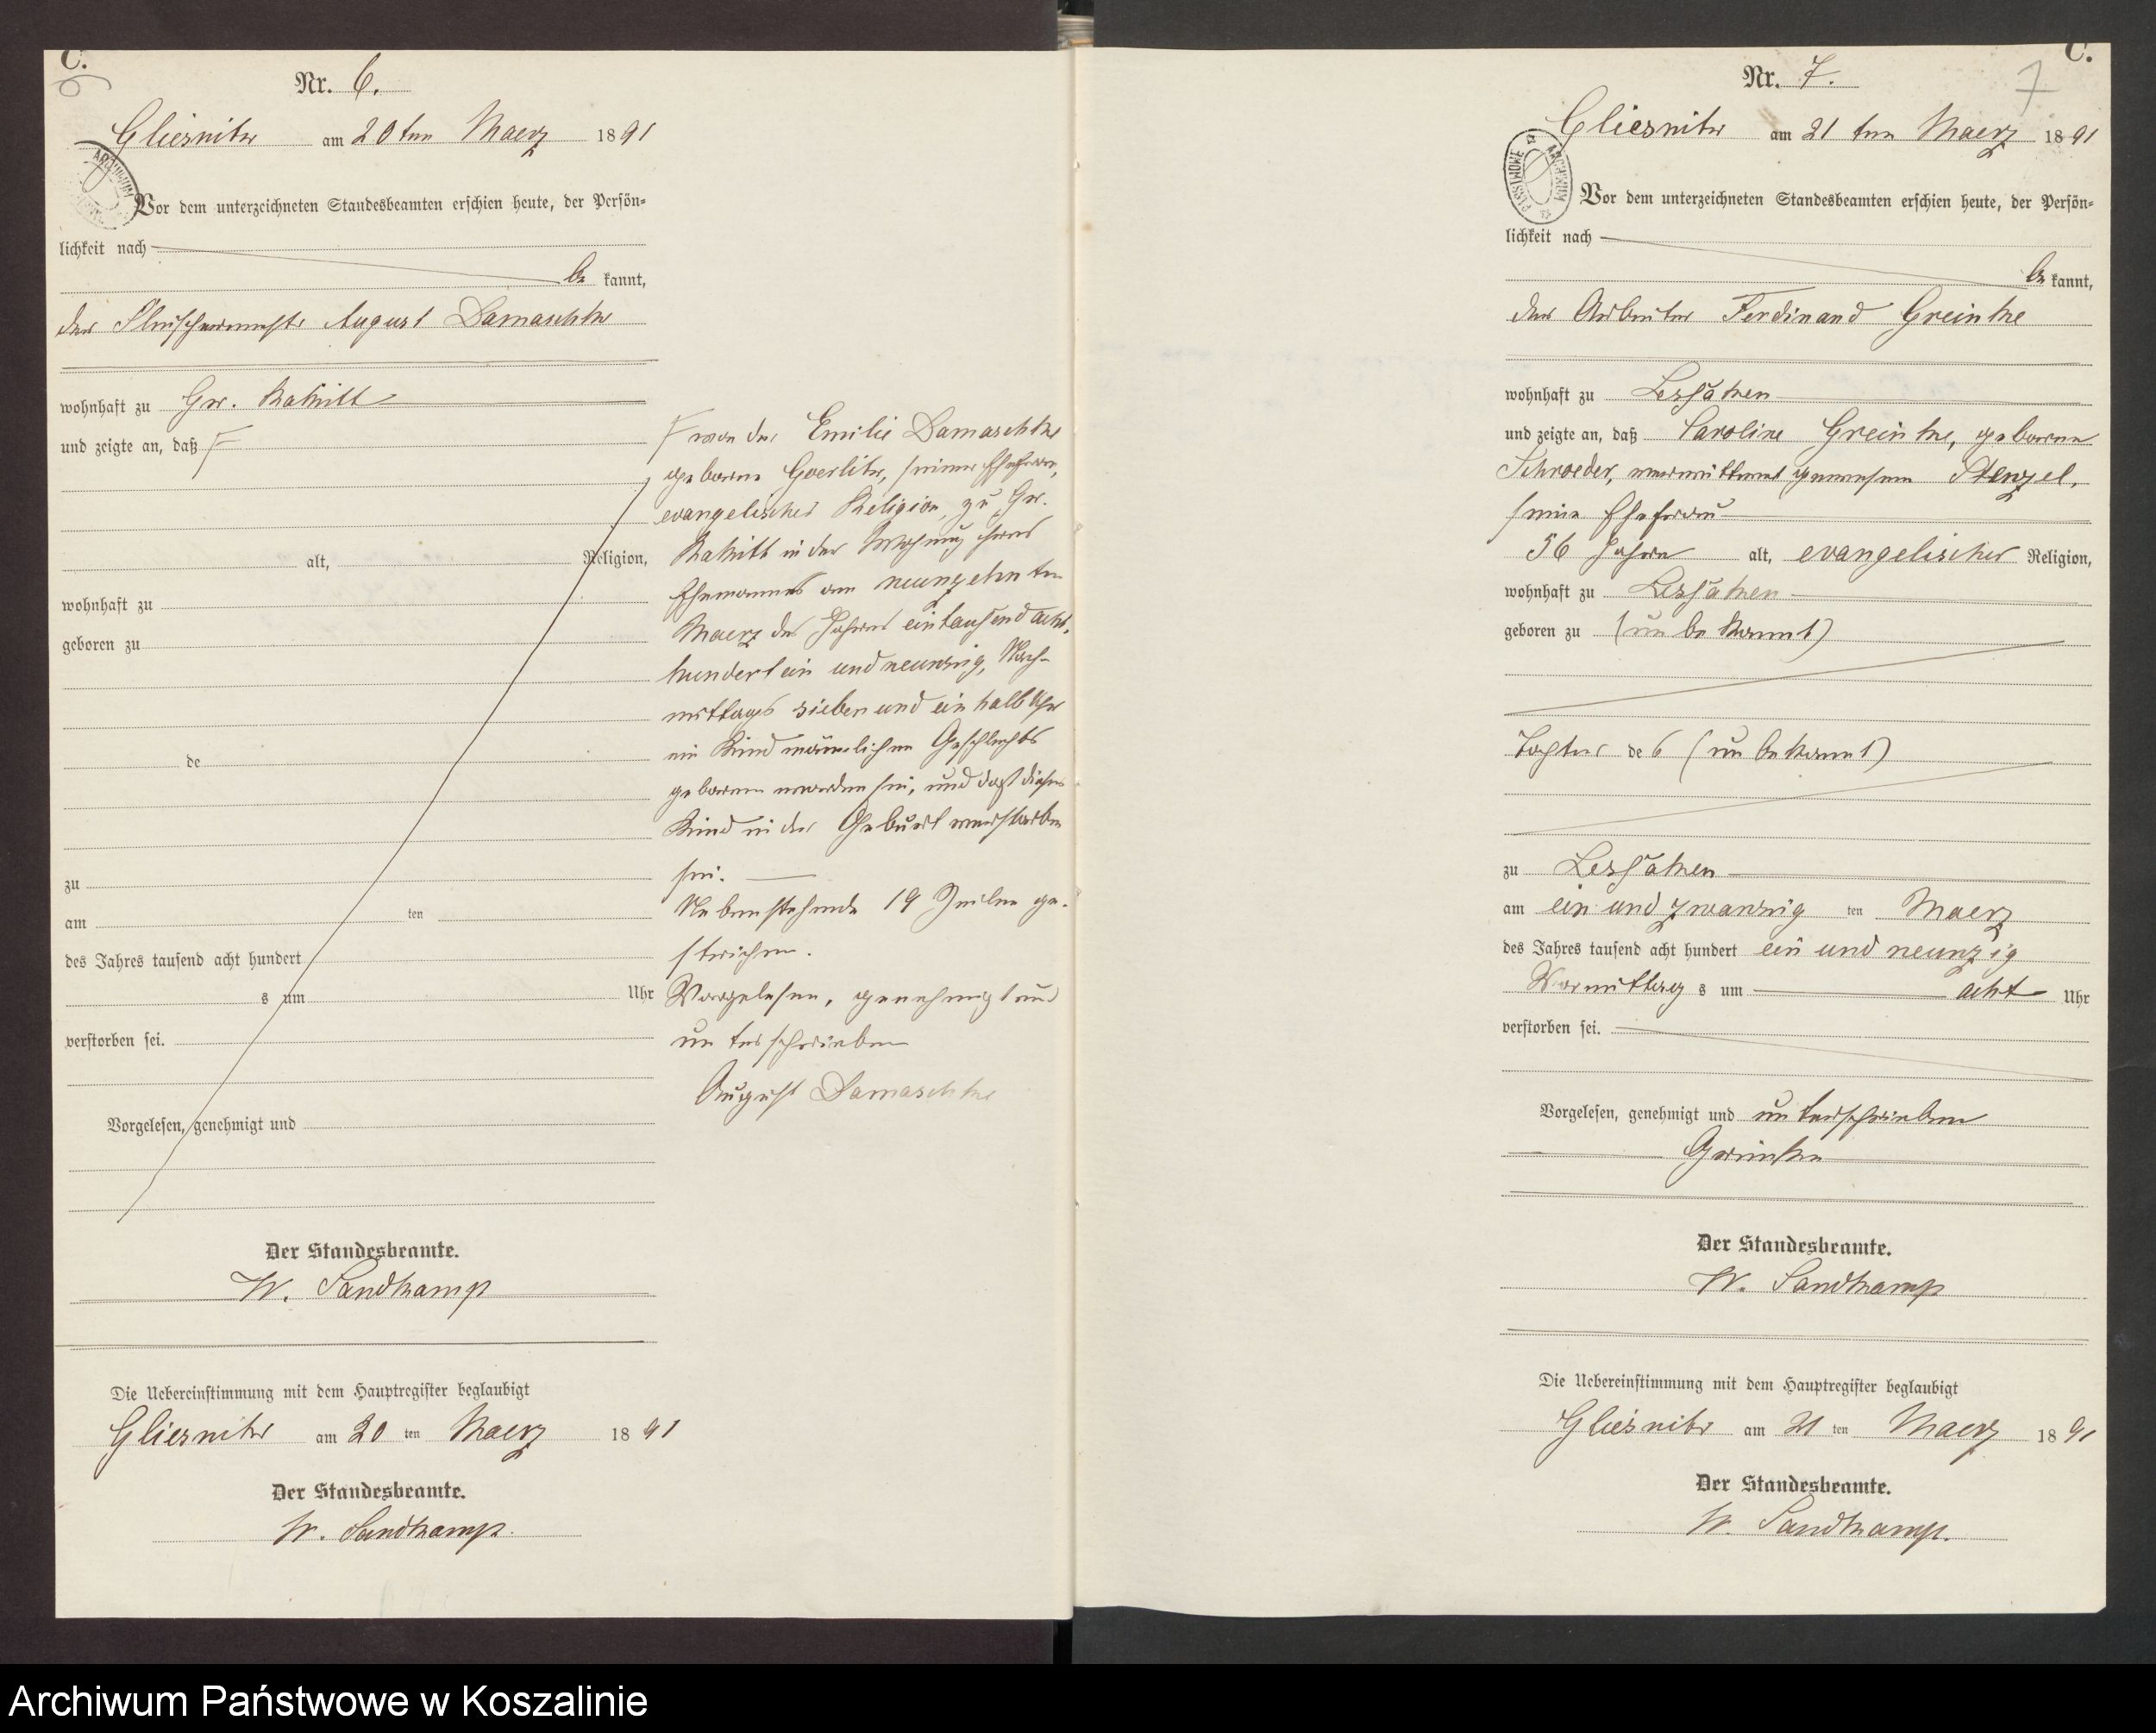 C.
6
Nr. 6.
Gliesnitz am 20ten Maerz 1891
Vor dem unterzeichneten Standesbeamten erschien heute, der Persön-
lichkeit nach
be kannt,
der August Damaschke
wohnhaft zu Gr. Rakitt
und zeigte an, daß
alt, Religion,
wohnhaft zu
geboren zu
de
zu
am ten
des Jahres tausend acht hundert
s um Uhr
verstorben sei.
Vorgelesen, genehmigt und
Der Standesbeamte.
W. Sandkamp
Die Uebereinstimmung mit dem Hauptregister beglaubigt
Gliesnitz am 20 ten Maerz 1891
Der Standesbeamte.
W. Sandkamp.
von der Emilie Damaschke
geborne Goerlitz, seiner Ehefrau,
evangelischer Religion, zu Gr.
Rakitt in der Wohnung ihres
Ehemannes am neunzehnten
Maerz des Jahres eintausend acht-
hundert ein und neunzig, Nach-
mittags sieben und ein halb Uhr
ein Kind männlichen Geschlechts
geboren worden sei, und daß dieses
Kind in der Geburt verstorben
sei.
Nebenstehende 19 Zeilen ge-
strichen.
Vorgelesen, genehmigt und
unterschrieben
August Damaschke
C.
7
Nr. 7.
Gliesnitz am 21 ten Maerz 1891
ARCHIWUM PAŃSTWOWE
Vor dem unterzeichneten Standesbeamten erschien heute, der Persön-
lichkeit nach
be kannt,
der Arbeiter Ferdinand Greinke
wohnhaft zu Lessaken
und zeigte an, daß Caroline Greinke, geborne
Schroeder, verwittwet gewesene Stenzel,
seine Ehefrau
56 Jahre alt, evangelischer Religion,
wohnhaft zu Lessaken
geboren zu (unbekannt)
Tochter des (unbekannt)
zu Lessaken
am ein und zwanzig ten Maerz
des Jahres tausend acht hundert ein und neunzig
Vormittag s um acht Uhr
verstorben sei.
Vorgelesen, genehmigt und unterschrieben
Greinke
Der Standesbeamte.
W. Sandkamp
Die Uebereinstimmung mit dem Hauptregister beglaubigt
Gliesnitz am 21 ten Maerz 1891
Der Standesbeamte.
W. Sandkamp.
Archiwum Państwowe w Koszalinie